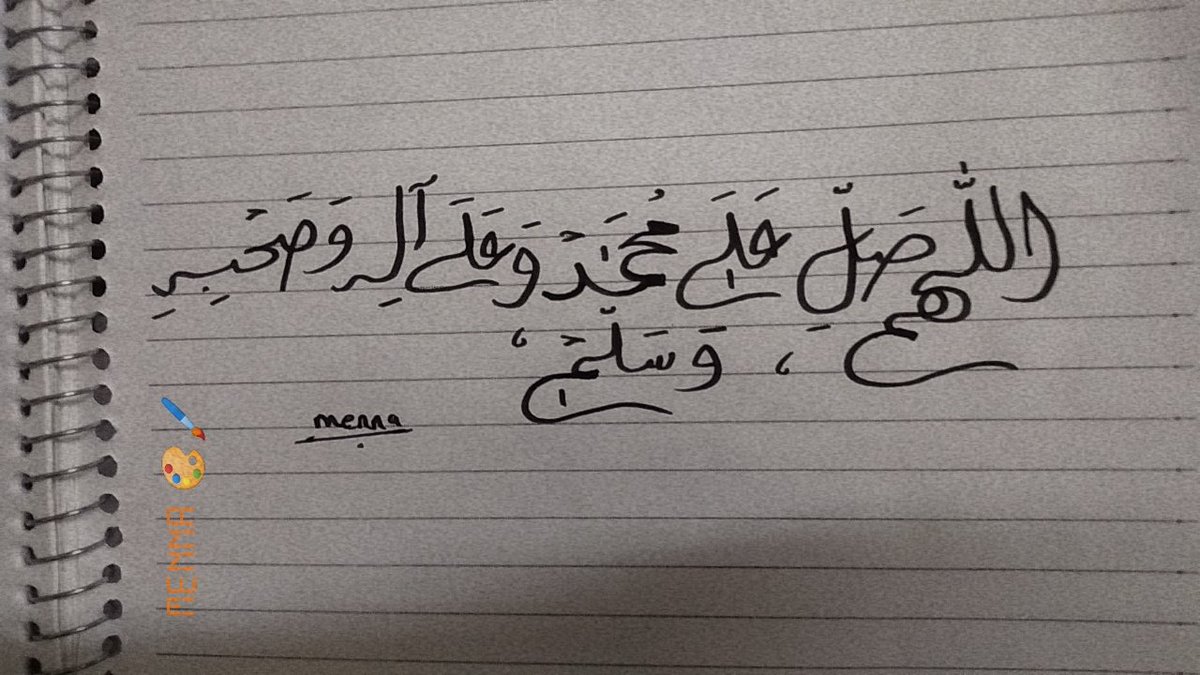 اللّهم صَلِّ عَلَى مُحَمَّدٍ وَعَلَى آلِهِ وَصَحْبِهِ
وَسَلِّمْ
menna
MENMA